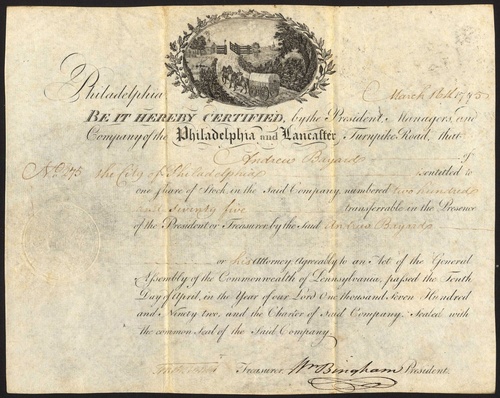 Philadelphia March 16th 1795
BE IT HEREBY CERTIFIED, by the President, Managers, and
Company of the Philadelphia and Lancaster Turnpike Road, that
Andrew Bayard of
No. 275 the City of Philadelphia is entitled to
one Share of Stock in the Said Company, numbered two hundred
and seventy five transferrable in the Presence
of the President or Treasurer by the Said Andrew Bayard
or his Attorney, Agreeably to an Act of the General
Assembly of the Commonwealth of Pennsylvania, passed the Tenth
Day of April, in the Year of our Lord One thousand Seven Hundred
and Ninety two, and the Charter of Said Company; Sealed with
the common Seal of the Said Company.
Treasurer. Wm Bingham President.